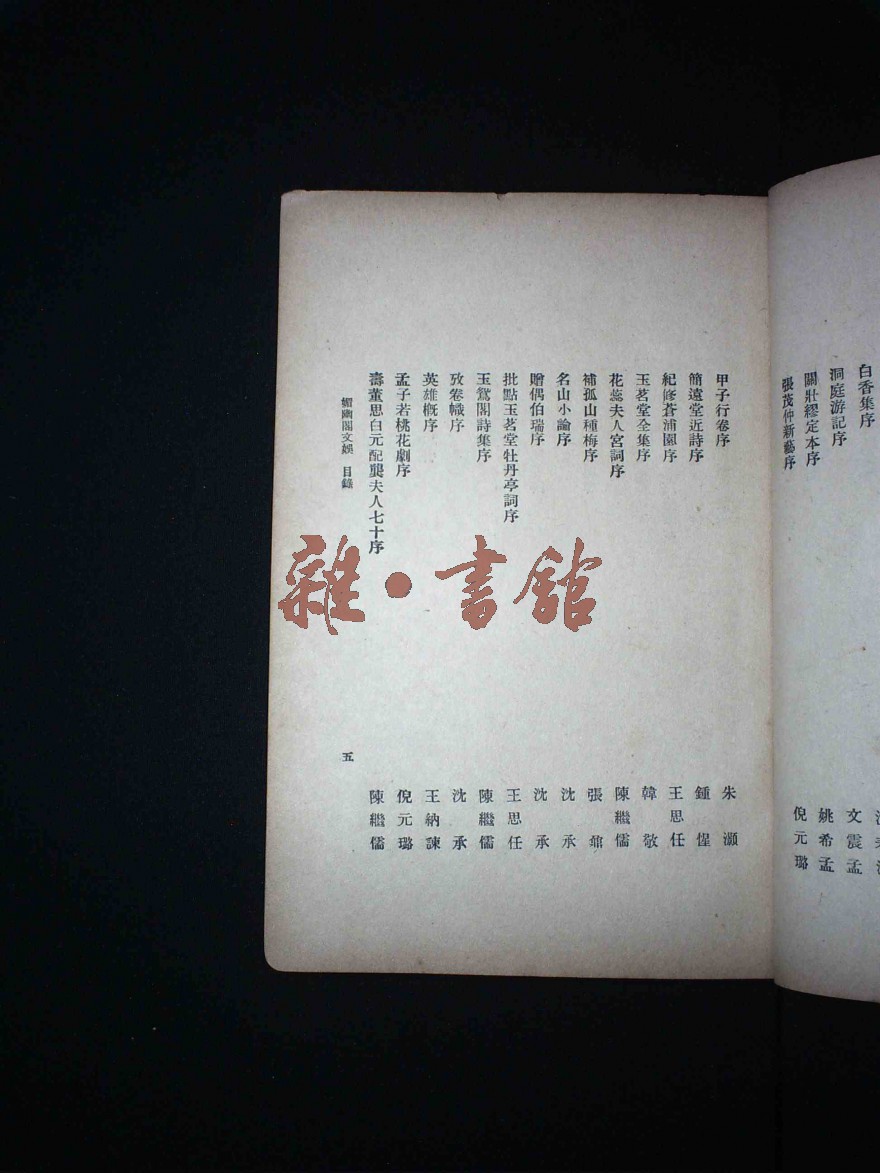 白香集序
洞庭游記序
關壯繆定本序
張茂仲新藝序
文震孟
姚希孟
倪元璐
甲子行卷序 朱灝
簡遠堂近詩序 鍾惺
紀修蒼浦園序 王思任
玉茗堂全集序 韓敬
花蕊夫人宮詞序 陳繼儒
補孤山種梅序 張鼐
名山小論序 沈承
贈偶伯瑞序 沈承
批點玉茗堂牡丹亭詞序 王思任
玉鴛閣詩集序 陳繼儒
攷卷幟序 沈承
英雄概序 王納諫
孟子若桃花劇序 倪元璐
壽董思白元配龔夫人七十序 陳繼儒
媚幽閣文娛 目錄 五
雜·書館